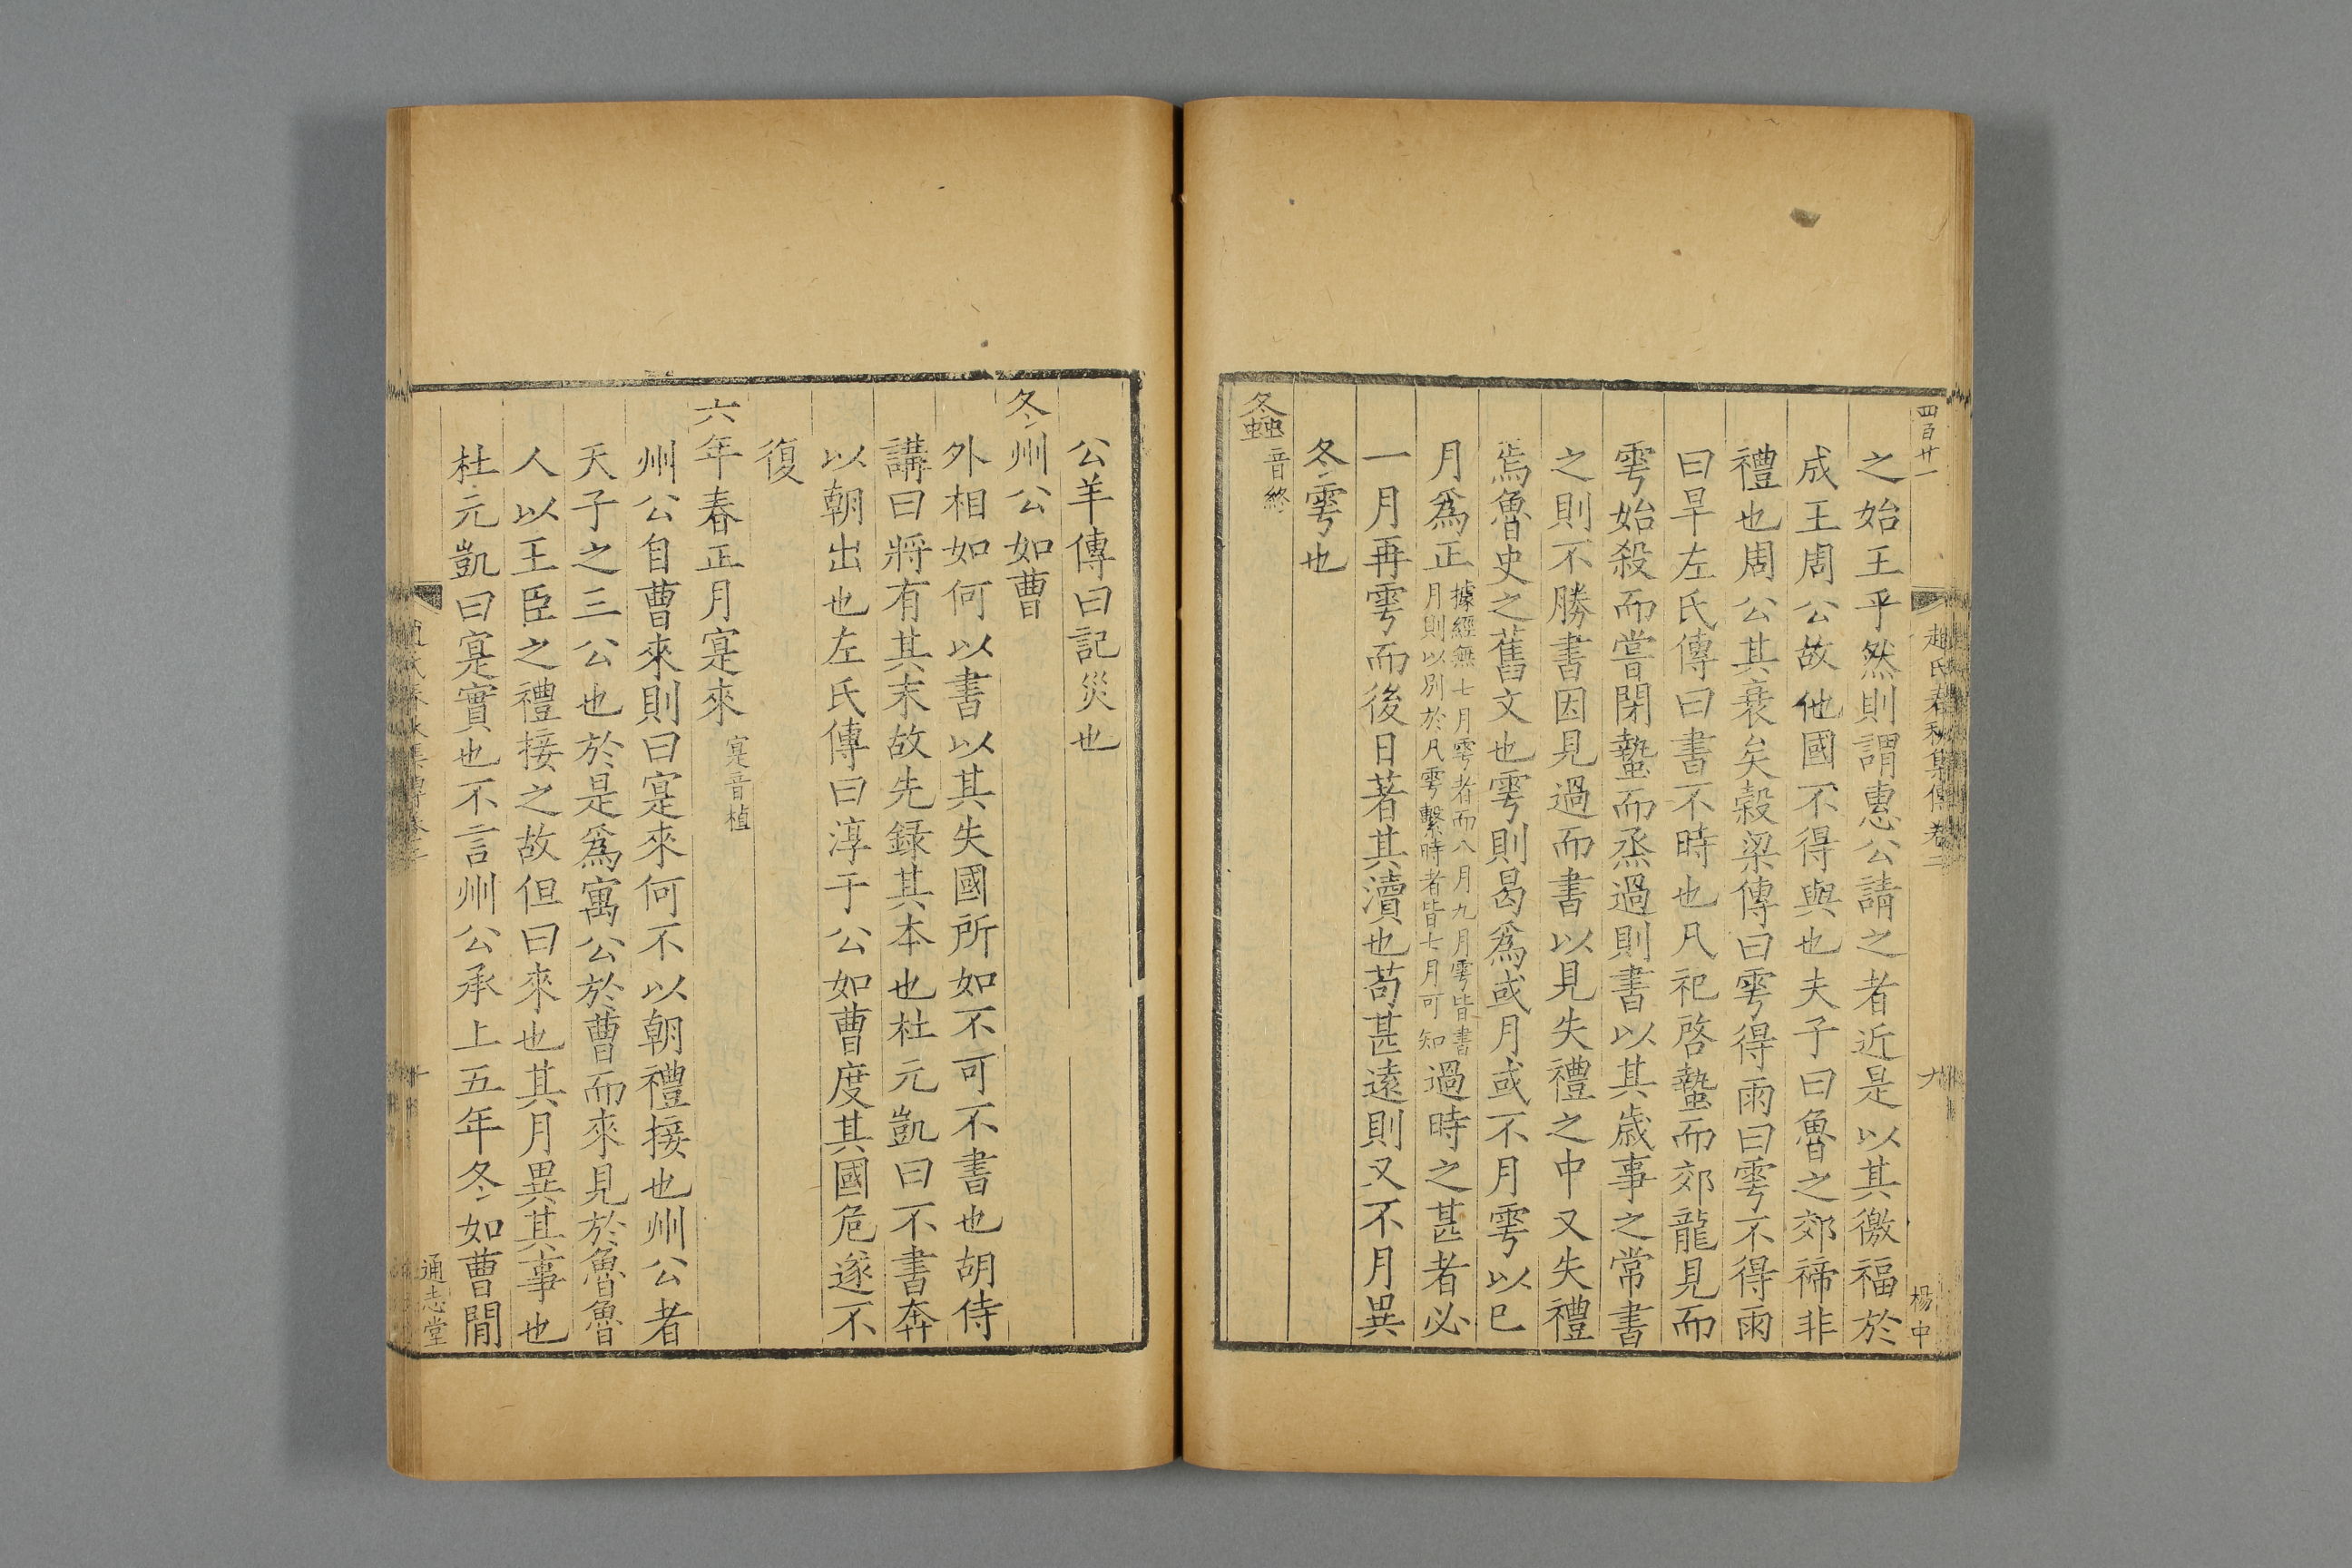 四百廿一
趙氏春秋集傳卷二
九
楊中
之始王乎然則謂惠公請之者近是以其徼福於
成王周公故他國不得與也夫子曰魯之郊禘非
禮也周公其衰矣穀梁傳曰雩得雨曰雩不得雨
曰旱左氏傳曰書不時也凡祀啓蟄而郊龍見而
雩始殺而嘗閉蟄而烝過則書以其歲事之常書
之則不勝書因見過而書以見失禮之中又失禮
焉魯史之舊文也雩則曷爲或月或不月雩以巳
月爲正據經無七月雩者而八月九月雩皆書月則以別於凡雩繫時者皆七月可知過時之甚者必
一月再雩而後日著其瀆也苟甚遠則又不月異
冬雩也
螽音終
公羊傳曰記災也
冬州公如曹
外相如何以書以其失國所如不可不書也胡侍
講曰將有其末故先錄其本也杜元凱曰不書奔
以朝出也左氏傳曰淳于公如曹度其國危遂不
復
六年春正月寔來寔音植
州公自曹來則曰寔來何不以朝禮接也州公者
天子之三公也於是爲寓公於曹而來見於魯魯
人以王臣之禮接之故但曰來也其月異其事也
杜元凱曰寔實也不言州公承上五年冬如曹閒
通志堂